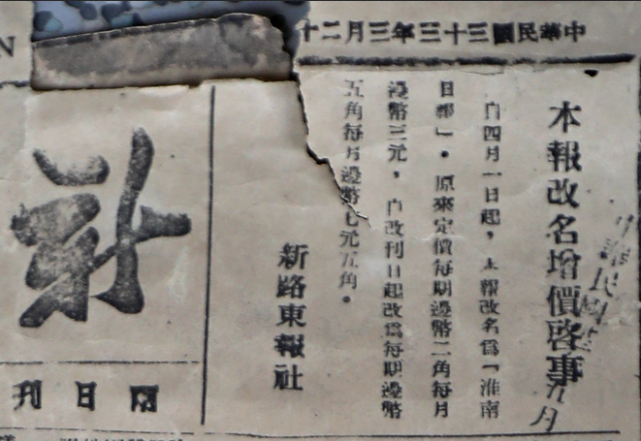 中華民國三十三年三月二十
本報改名增價啓事
自四月一日起，本報改名爲「淮南
日報」。原來定價每期邊幣二角每月
邊幣三元，自改刊日起改爲每期邊幣
五角每月邊幣七元五角。
新路東報社
新
隔日刊